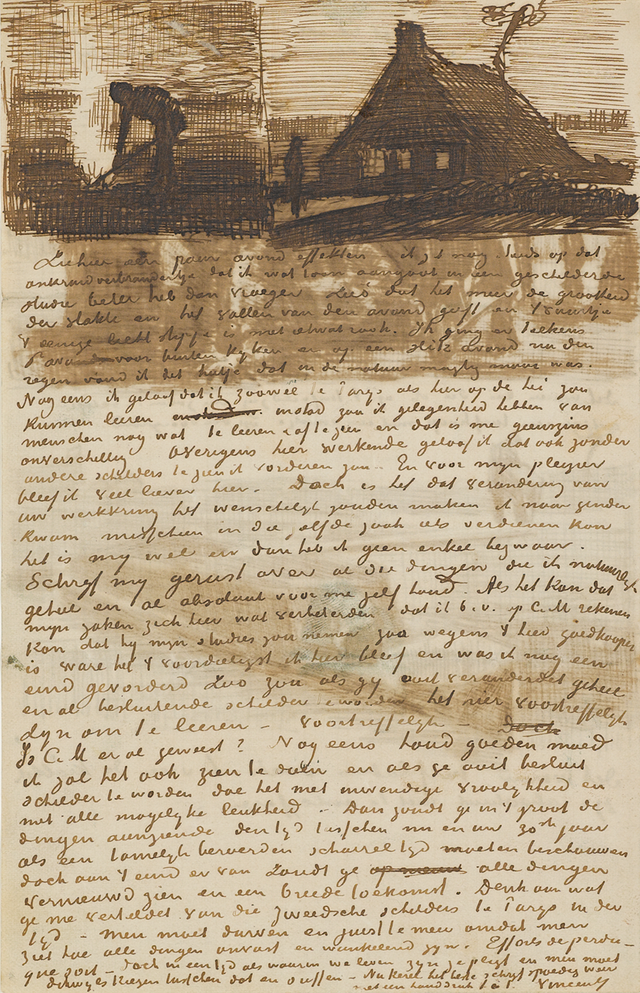 Ziehier een paar avond effekten – ik ben nog steeds op dat
onkruidverbrandertje dat ik wat toon aangaat in een geschilderde
studie beter heb dan vroeger zoó dat het meer de grootheid
der vlakte en het vallen van den avond geeft en 't vuurtje
't eenige licht stipje is met wat rook. Ik ging er telkens
s'avonds voor buiten kijken en op een avond na den
regen vond ik dit hutje dat in de natuur magtig mooi was.
Nog eens ik geloof dat ik zoowel te Parijs als hier op de hei zou
kunnen leeren in de stad zou ik gelegenheid hebben van
menschen nog wat te leeren & af te zien en dat is me geenszins
onverschillig Overigens hier werkende geloof ik dat ook zonder
andere schilders te zien ik vorderen zou. En voor mijn pleizier
bleef ik veel liever hier. Doch is het dat verandering van
uw werkkring het wenschelijk zouden maken ik naar ginder
kwam misschien in die zelfde zaak iets verdienen kon
het is mij wel en dan heb ik geen enkel bezwaar.
Schrijf mij gerust over al die dingen die ik natuurlijk
geheel en al absoluut voor me zelf houd. Als het kan dat
mijn zaken zich hier wat verbeterden dat ik b.v. op C.M rekenen
kon dat hij mijn studies zou nemen zoo wegens 't hier goedkooper
is ware het 't voordeeligst ik hier bleef en was ik nog een
eind gevorderd Zoo zou als gij ooit veranderdet geheel
en al besluitende schilder te worden het hier voortreffelijk
zijn om te leeren – voortreffelijk – doch
Is C.M er al geweest? Nog eens houd goeden moed
ik zal het ook zien te doen en als ge ooit besluit
schilder te worden doe het met inwendige vroolijkheid en
met alle mogelijke leukheid. Dan zoudt ge in 't groot de
dingen aanziende den tijd tusschen nu en uw 30ste jaar
als een tamelijk beroerden scharreltijd moeten beschouwen
doch aan 't eind er van zoudt ge op nieuw alle dingen
vernieuwd zien en een breede toekomst. Denk aan wat
ge me verteldet van die zweedsche schilders te Parijs in der
tijd – Men moet durven en juist te meer omdat men
ziet hoe alle dingen onvast en wankelend zijn. Efforts de perdu –
que soit – doch in een tijd als waarin we leven zijn ze pligt en men moet
dikwijls kiezen tusschen dat en suffen – Nu kerel het beste schrijf spoedig weer
met een handdruk t. à t. Vincent